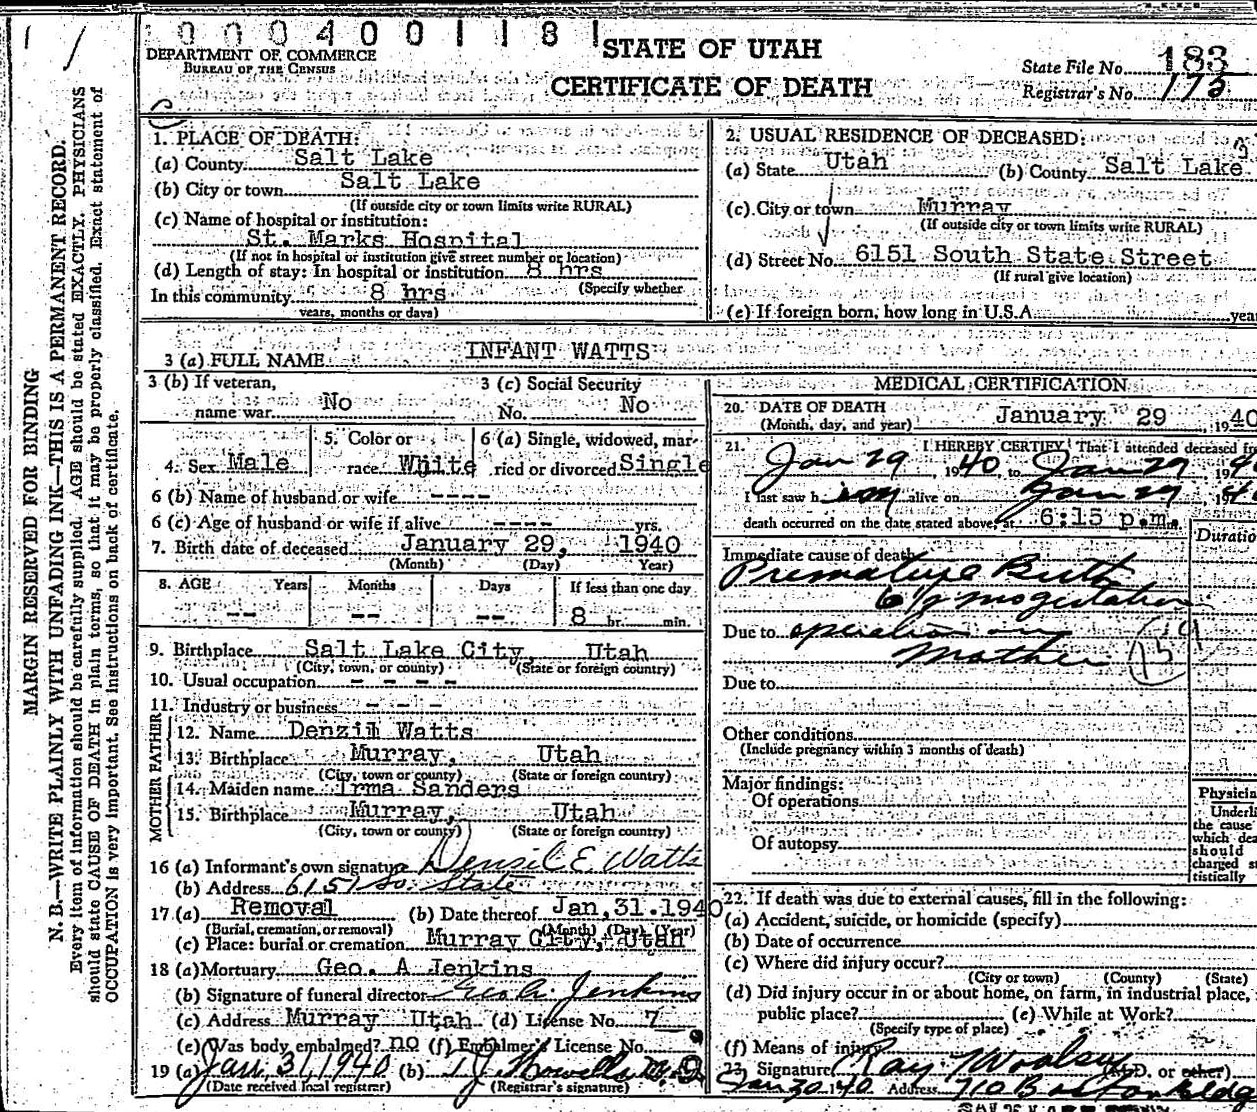 1 0 0 0 4 0 0 1 1 8 1
STATE OF UTAH
CERTIFICATE OF DEATH
DEPARTMENT OF COMMERCE
BUREAU OF THE CENSUS
State File No. 183
Registrar's No. 173
MARGIN RESERVED FOR BINDING
N. B.—WRITE PLAINLY WITH UNFADING INK—THIS IS A PERMANENT RECORD.
Every item of information should be carefully supplied. AGE should be stated EXACTLY. PHYSICIANS
should state CAUSE OF DEATH in plain terms, so that it may be properly classified. Exact statement of
OCCUPATION is very important. See instructions on back of certificate.
1. PLACE OF DEATH:
(a) County Salt Lake
(b) City or town Salt Lake
(If outside city or town limits write RURAL)
(c) Name of hospital or institution:
St. Marks Hospital
(If not in hospital or institution give street number or location)
(d) Length of stay: In hospital or institution 8 hrs
(Specify whether
In this community 8 hrs
years, months or days)
2. USUAL RESIDENCE OF DECEASED:
(a) State Utah (b) County Salt Lake
(c) City or town Murray
(If outside city or town limits write RURAL)
(d) Street No. 6151 South State Street
(If rural give location)
(e) If foreign born, how long in U.S.A. year
3 (a) FULL NAME INFANT WATTS
3 (b) If veteran, 3 (c) Social Security
name war No No. No
4. Sex Male 5. Color or race White 6 (a) Single, widowed, mar-
ried or divorced Single
6 (b) Name of husband or wife ----
6 (c) Age of husband or wife if alive ---- yrs.
7. Birth date of deceased January 29, 1940
(Month) (Day) (Year)
8. AGE Years Months Days If less than one day
-- -- -- 8 hr. min.
9. Birthplace Salt Lake City, Utah
(City, town, or county) (State or foreign country)
10. Usual occupation - - - -
11. Industry or business - - -
FATHER
12. Name Denzil Watts
13. Birthplace Murray, Utah
(City, town or county) (State or foreign country)
MOTHER
14. Maiden name Irma Sanders
15. Birthplace Murray, Utah
(City, town or county) (State or foreign country)
16 (a) Informant's own signature Denzil E. Watts
(b) Address 6151 So. State
17 (a) Removal (b) Date thereof Jan, 31. 1940
(Burial, cremation, or removal) (Month) (Day) (Year)
(c) Place: burial or cremation Murray City, Utah
18 (a) Mortuary Geo. A Jenkins
(b) Signature of funeral director Geo A. Jenkins
(c) Address Murray Utah (d) License No. 7
(e) Was body embalmed? no (f) Embalmer's License No.
19 (a) Jan 31, 1940 (b) T J Howells M.D
(Date received local registrar) (Registrar's signature)
MEDICAL CERTIFICATION
20. DATE OF DEATH January 29 , 1940
(Month, day, and year)
21. I HEREBY CERTIFY, That I attended deceased fro
Jan 29 1940 to Jan 29 194
I last saw h im alive on Jan 29 194
death occurred on the date stated above, at 6:15 p.m.
Duratio
Immediate cause of death
Premature Birth
6 1/2 mo gestation
Due to operation on
Mother
Due to
Other conditions
(Include pregnancy within 3 months of death)
Major findings:
Of operations
Of autopsy
Physicia
Underli
the cause
which dea
should
charged s
tistically
22. If death was due to external causes, fill in the following:
(a) Accident, suicide, or homicide (specify)
(b) Date of occurrence
(c) Where did injury occur?
(City or town) (County) (State)
(d) Did injury occur in or about home, on farm, in industrial place,
public place? (e) While at Work?
(Specify type of place)
(f) Means of injury
23. Signature Ray Woolsey (M.D. or other)
Jan 30 1940 Address 710 Boston Bldg